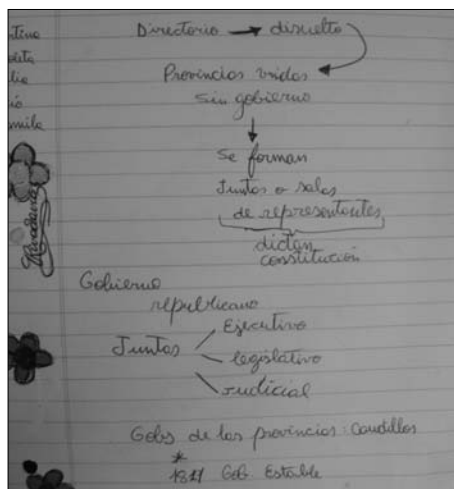 Directorio → disuelto
Provincias unidas
sin gobierno
Se forman
Juntas o salas
de representantes
dictan
constitución
Gobierno
republicano
Juntas
Ejecutivo
legislativo
Judicial
Gobs de las provincias: Caudillos
*
Gob. Estable